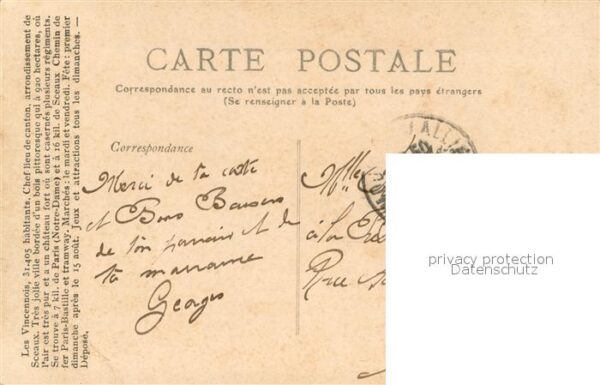 Les Vincennois, 31.405 habitants. Chef lieu de canton, arrondissement de
Sceaux. Très jolie ville bordée d'un bois pittoresque qui a 920 hectares, où
l'air est très pur et a un château-fort où sont casernés plusieurs régiments.
Se trouve à 7 kil. de Paris (Notre-Dame) et à 16 kil. de Sceaux. Chemin de
fer Paris-Bastille et tramway. Marchés : le mardi et vendredi. Fête : premier
dimanche après le 15 août. Jeux et attractions tous les dimanches. —
Déposé.
CARTE POSTALE
Correspondance au recto n'est pas acceptée par tous les pays étrangers
(Se renseigner à la Poste)
Correspondance
Merci de ta carte
et Bons Baisers
de ton parrain et de
ta marraine
Georges
Mlle
à la
Rue
privacy protection
Datenschutz